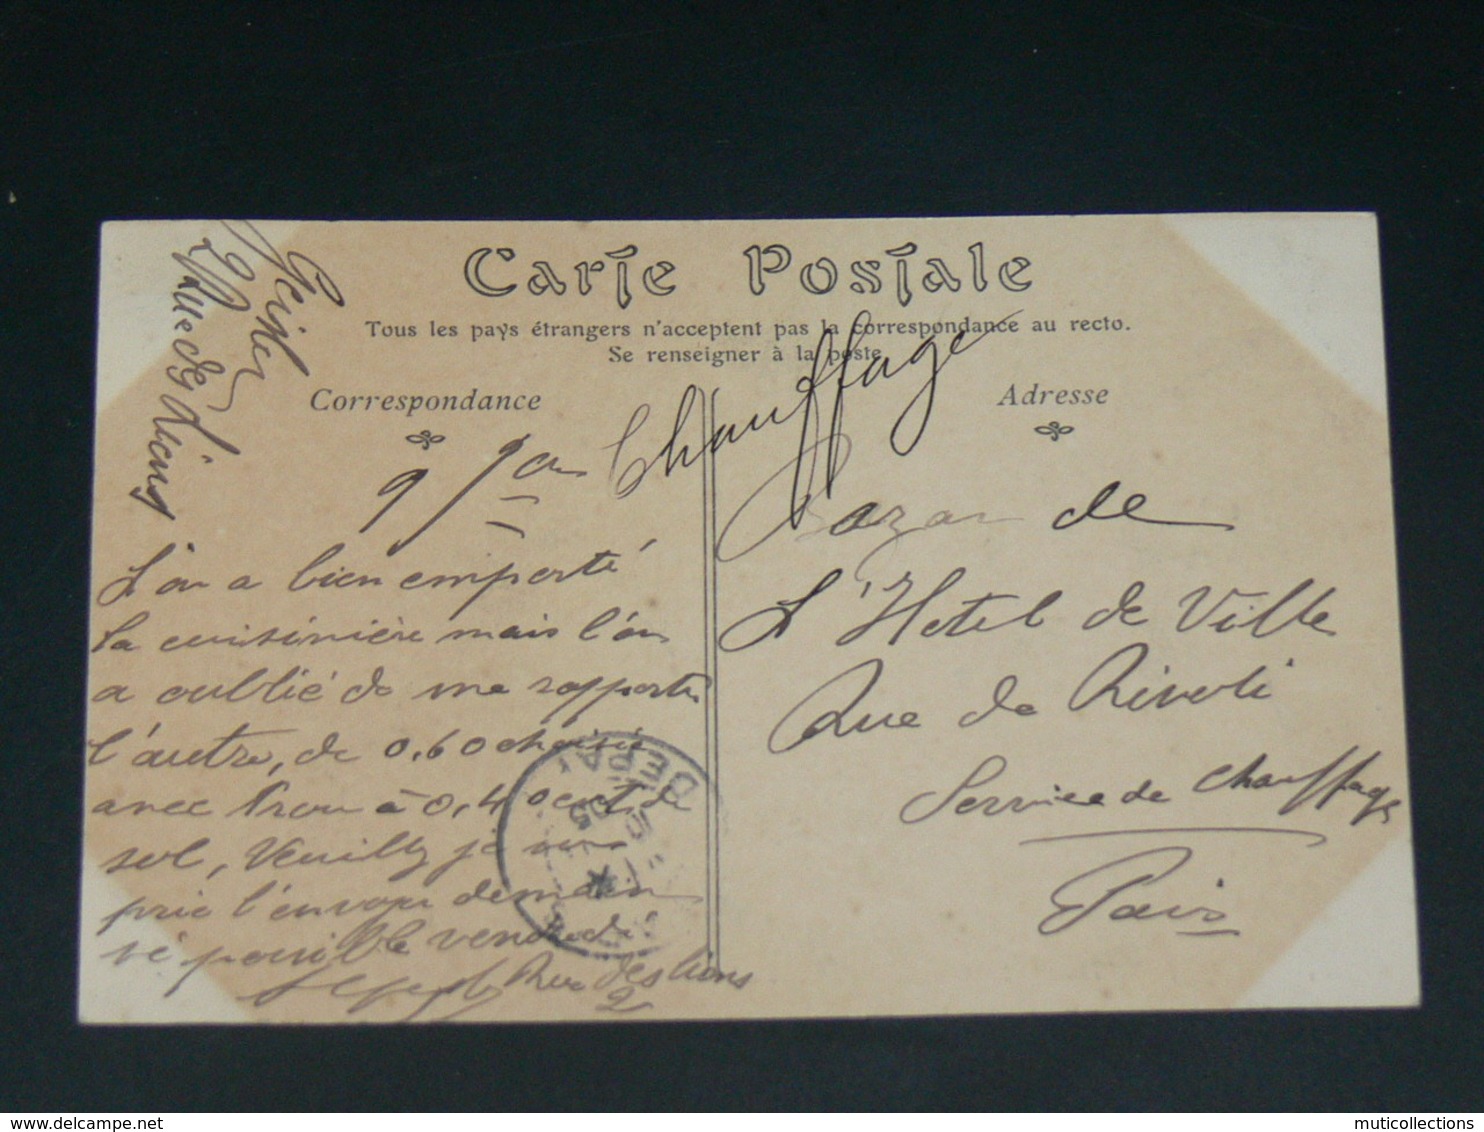 Carte Postale
Tous les pays étrangers n'acceptent pas la correspondance au recto.
Se renseigner à la poste
Correspondance
Adresse
Chauffage
Rue des Lions
9
L'on a bien emporté
la cuisinière mais l'on
a oublié de me rapporter
l'autre, de 0,60 choisie
avec trou à 0,40 cent du
sol, Veuillez je vous
prie l'envoyer demain
si possible vendredi
Rue des Lions
2
Bazar de
L'Hotel de Ville
Rue de Rivoli
Service de Chauffage
Paris
DEPART
05
delcampe.net
muticollections